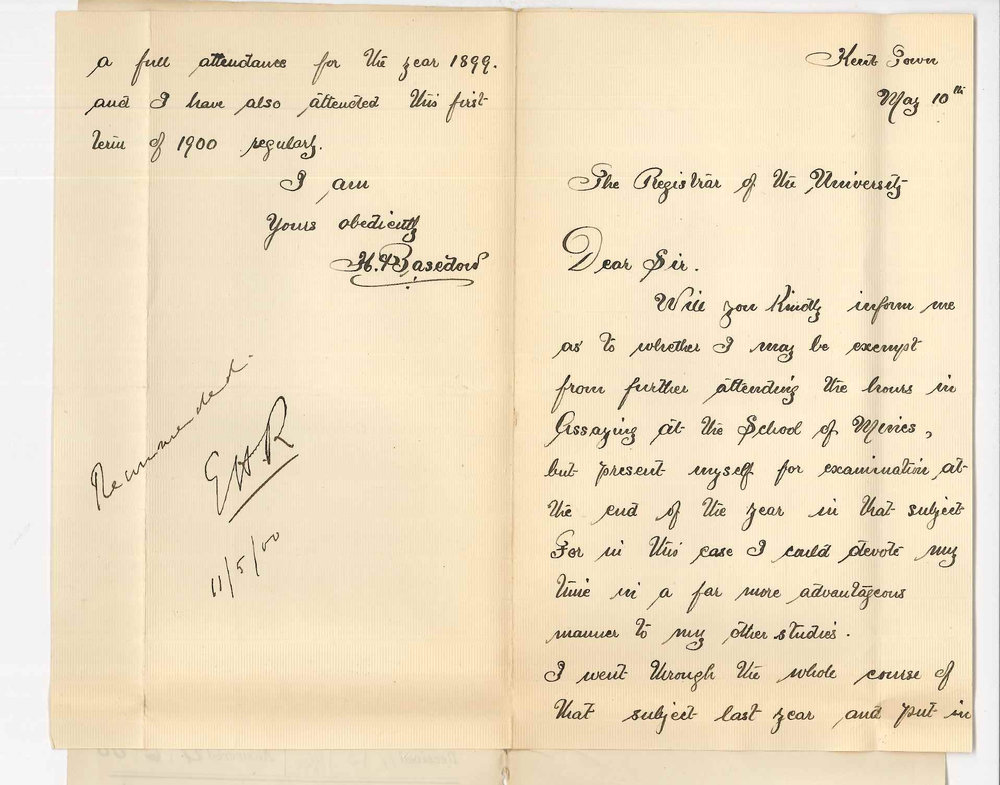 Kent Town
May 10th
The Registrar of the University
Dear Sir.
Will you Kindly inform me
as to whether I may be exempt
from further attending the hours in
Assaying at the School of Mines,
but present myself for examination at
the end of the year in that subject
For in this case I could devote my
time in a far more advantageous
manner to my other studies.
I went through the whole course of
that subject last year and put in
a full attendance for the year 1899.
and I have also attended this first
term of 1900 regularly.
I am
Yours obediently
H. Basedow
Recommended
EHR
11/5/00